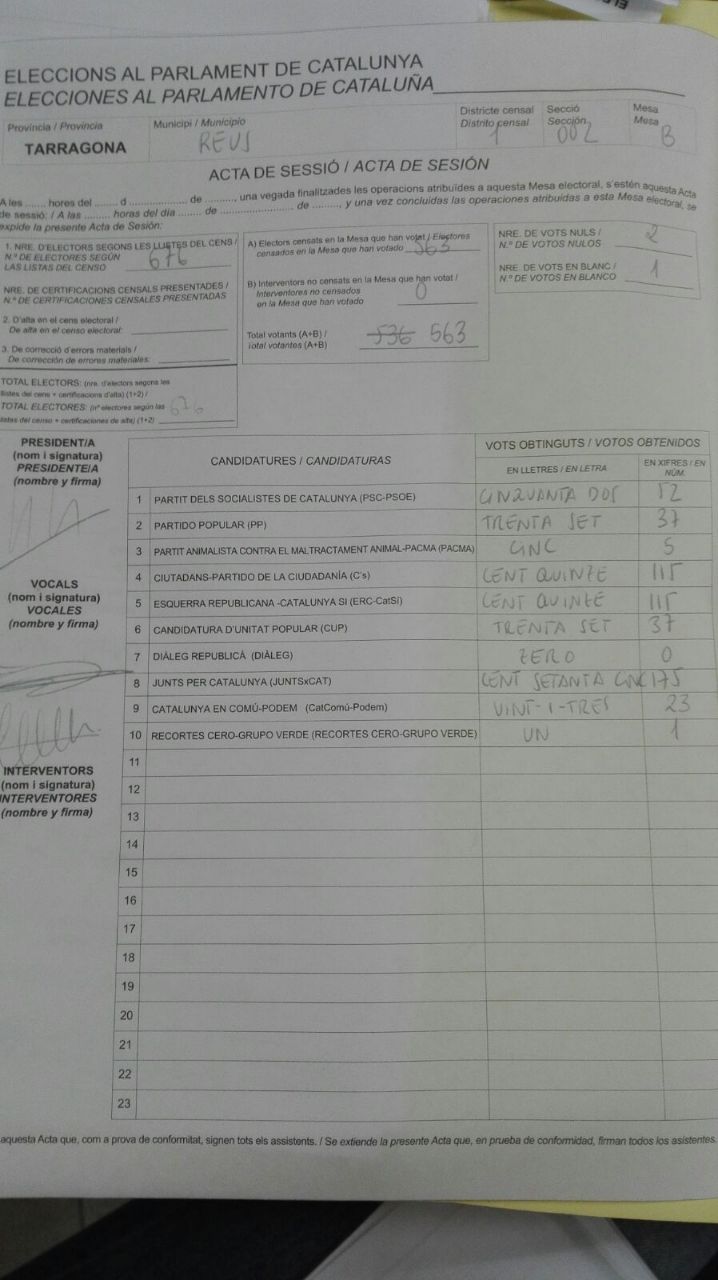 ELECCIONS AL PARLAMENT DE CATALUNYA
ELECCIONES AL PARLAMENTO DE CATALUÑA
Província / Provincia
TARRAGONA
Municipi / Municipio
REUS
Districte censal
Distrito censal
1
Secció
Sección
002
Mesa
Mesa
B
ACTA DE SESSIÓ / ACTA DE SESIÓN
A les ....... hores del ..... d .................. de ........., una vegada finalitzades les operacions atribuïdes a aquesta Mesa electoral, s'estén aquesta Acta
de sessió: / A las ........ horas del día ....... de ....................... de ........, y una vez concluidas las operaciones atribuidas a esta Mesa electoral, se
expide la presente Acta de Sesión:
1. NRE. D'ELECTORS SEGONS LES LLISTES DEL CENS /
N.º DE ELECTORES SEGÚN
LAS LISTAS DEL CENSO
676
NRE. DE CERTIFICACIONS CENSALS PRESENTADES /
N.º DE CERTIFICACIONES CENSALES PRESENTADAS
2. D'alta en el cens electoral /
De alta en el censo electoral:
3. De correcció d'errors materials /
De corrección de errores materiales:
TOTAL ELECTORS: (nre. d'electors segons les
llistes del cens + certificacions d'alta) (1+2) /
TOTAL ELECTORES: (nº electores según las
listas del censo + certificaciones de alta) (1+2)
676
A) Electors censats en la Mesa que han votat / Electores
censados en la Mesa que han votado 563
B) Interventors no censats en la Mesa que han votat /
Interventores no censados
en la Mesa que han votado
0
Total votants (A+B) /
Total votantes (A+B)
536 563
NRE. DE VOTS NULS /
N.º DE VOTOS NULOS
2
NRE. DE VOTS EN BLANC /
N.º DE VOTOS EN BLANCO
1
PRESIDENT/A
(nom i signatura)
PRESIDENTE/A
(nombre y firma)
VOCALS
(nom i signatura)
VOCALES
(nombre y firma)
INTERVENTORS
(nom i signatura)
INTERVENTORES
(nombre y firma)
CANDIDATURES / CANDIDATURAS
VOTS OBTINGUTS / VOTOS OBTENIDOS
EN LLETRES / EN LETRA
EN XIFRES / EN NÚM.
1 PARTIT DELS SOCIALISTES DE CATALUNYA (PSC-PSOE) CINQUANTA DOS 52
2 PARTIDO POPULAR (PP) TRENTA SET 37
3 PARTIT ANIMALISTA CONTRA EL MALTRACTAMENT ANIMAL-PACMA (PACMA) CINC 5
4 CIUTADANS-PARTIDO DE LA CIUDADANÍA (C's) CENT QUINZE 115
5 ESQUERRA REPUBLICANA -CATALUNYA SI (ERC-CatSí) CENT QUINZE 115
6 CANDIDATURA D'UNITAT POPULAR (CUP) TRENTA SET 37
7 DIÀLEG REPUBLICÀ (DIÀLEG) ZERO 0
8 JUNTS PER CATALUNYA (JUNTSxCAT) CENT SETANTA CINC 175
9 CATALUNYA EN COMÚ-PODEM (CatComú-Podem) VINT-I-TRES 23
10 RECORTES CERO-GRUPO VERDE (RECORTES CERO-GRUPO VERDE) UN 1
11
12
13
14
15
16
17
18
19
20
21
22
23
aquesta Acta que, com a prova de conformitat, signen tots els assistents. / Se extiende la presente Acta que, en prueba de conformidad, firman todos los asistentes.